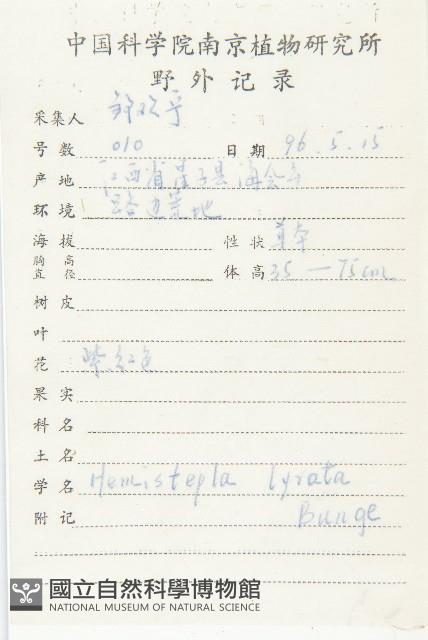 中国科学院南京植物研究所
野外记录
采集人
号数 010 日期 96.5.15
产地 江西省星子县海会乡
环境 路边荒地
海拔 性状 草本
胸高直径 体高 35 — 75cm
树皮
叶
花 紫红色
果实
科名
土名
学名 Hemistepta lyrata
附记 Bunge
國立自然科學博物館
NATIONAL MUSEUM OF NATURAL SCIENCE